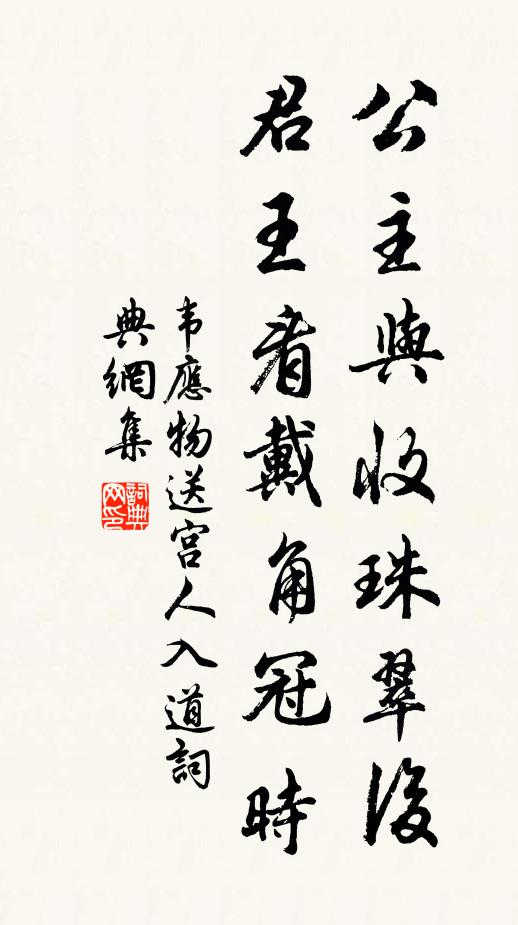 公主與收珠翠後
君王看戴角冠時
韦應物送宫人入道詞
典網集
詞典网印